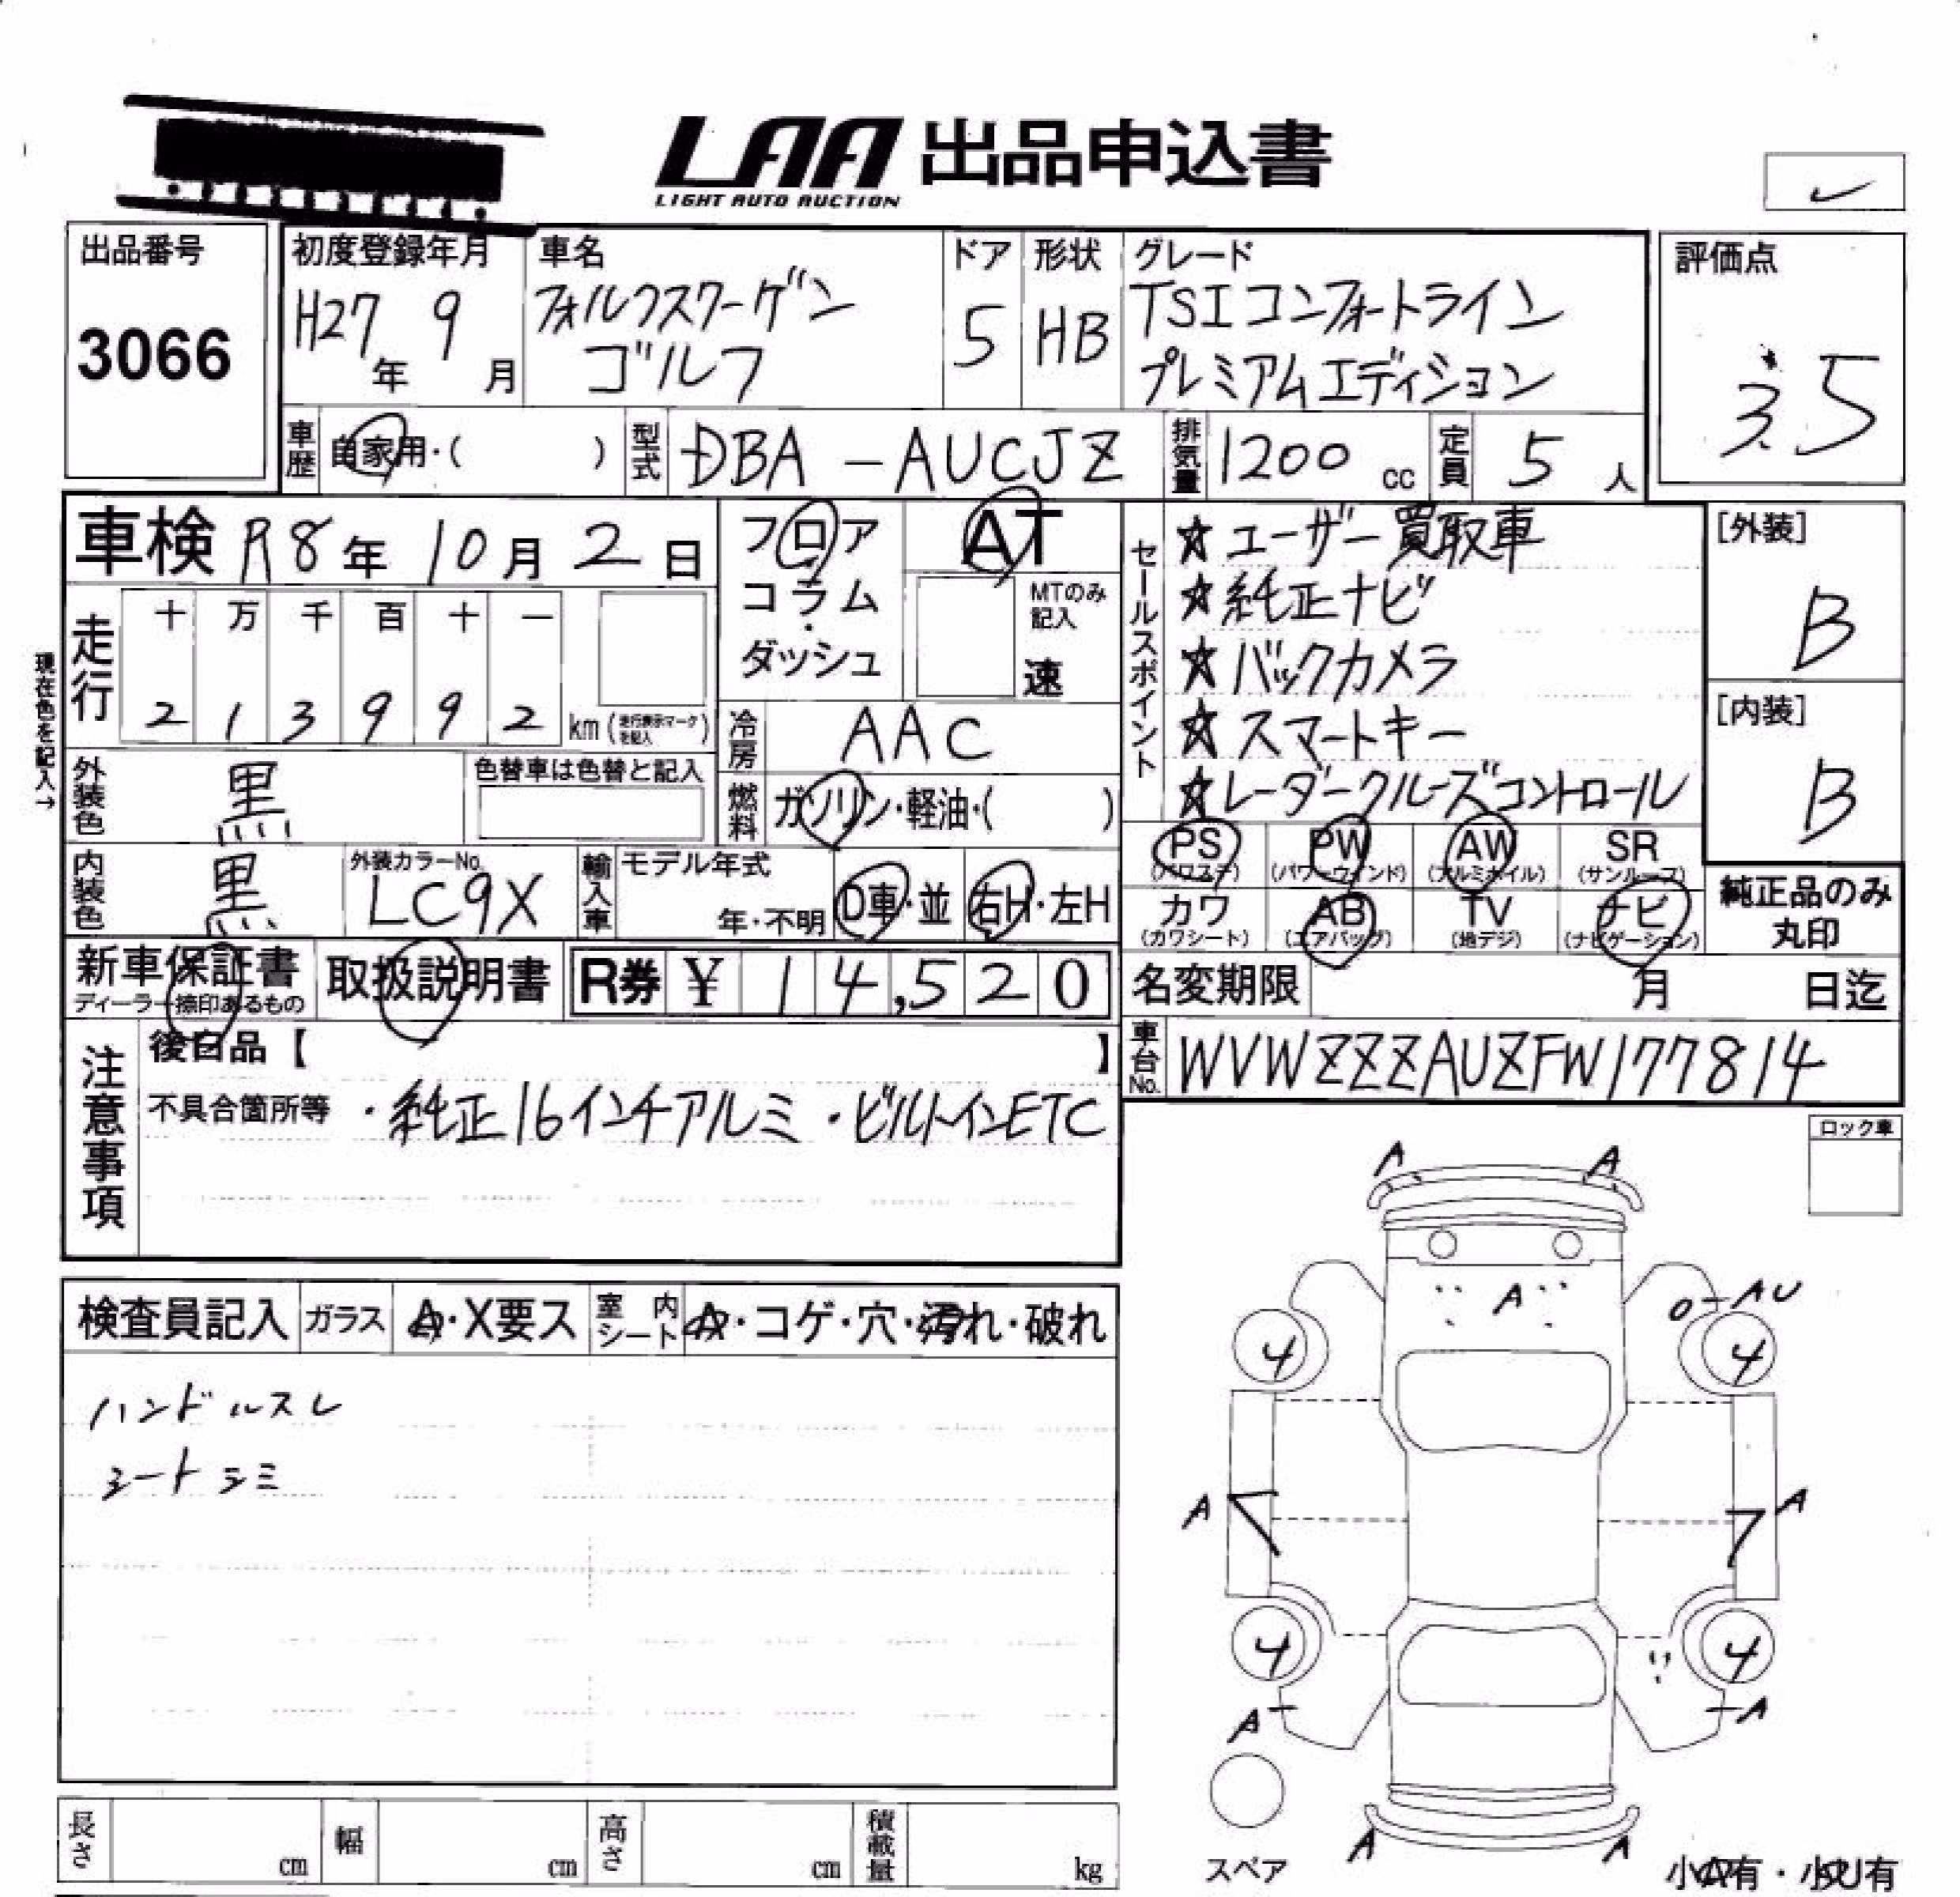 LAA 出品申込書
LIGHT AUTO AUCTION
出品番号
3066
初度登録年月
H27年 9月
車名
フォルクスワーゲン
ゴルフ
ドア
5
形状
HB
グレード
TSIコンフォートライン
プレミアムエディション
評価点
3.5
車歴 自家用・( )
型式 DBA-AUCJZ
排気量 1200 cc
定員 5 人
車検 R8年 10月 2日
フロア
コラム
ダッシュ
AT
MTのみ
記入
速
走行
十 万 千 百 十 一
2 1 3 9 9 2 km (走行表示マークを記入)
現在色を記入→
冷房 AAC
燃料 ガソリン・軽油・( )
外装色 黒
色替車は色替と記入
内装色 黒
外装カラーNo.
LC9X
輸入車 モデル年式
年・不明
D車・並
右H・左H
セールスポイント
☆ユーザー買取車
☆純正ナビ
☆バックカメラ
☆スマートキー
☆レーダークルーズコントロール
[外装]
B
[内装]
B
PS (パワステ)
PW (パワーウインド)
AW (アルミホイル)
SR (サンルーフ)
カワ (カワシート)
AB (エアバッグ)
TV (地デジ)
ナビ (ナビゲーション)
純正品のみ
丸印
新車保証書
ディーラー捺印あるもの
取扱説明書
R券 ¥ 14,520
名変期限 月 日迄
車台No. WVWZZZAUZFW177814
注意事項
後自品【 】
不具合箇所等 ・純正16インチアルミ ・ビルトインETC
ロック車
検査員記入
ガラス A・X要ス
室内シート A・コゲ・穴・汚れ・破れ
ハンドルスレ
シートシミ
A A
A
AU
4 4
A A
4 4
A A
A A
スペア
小A有・小U有
長さ cm
幅 cm
高さ cm
積載量 kg